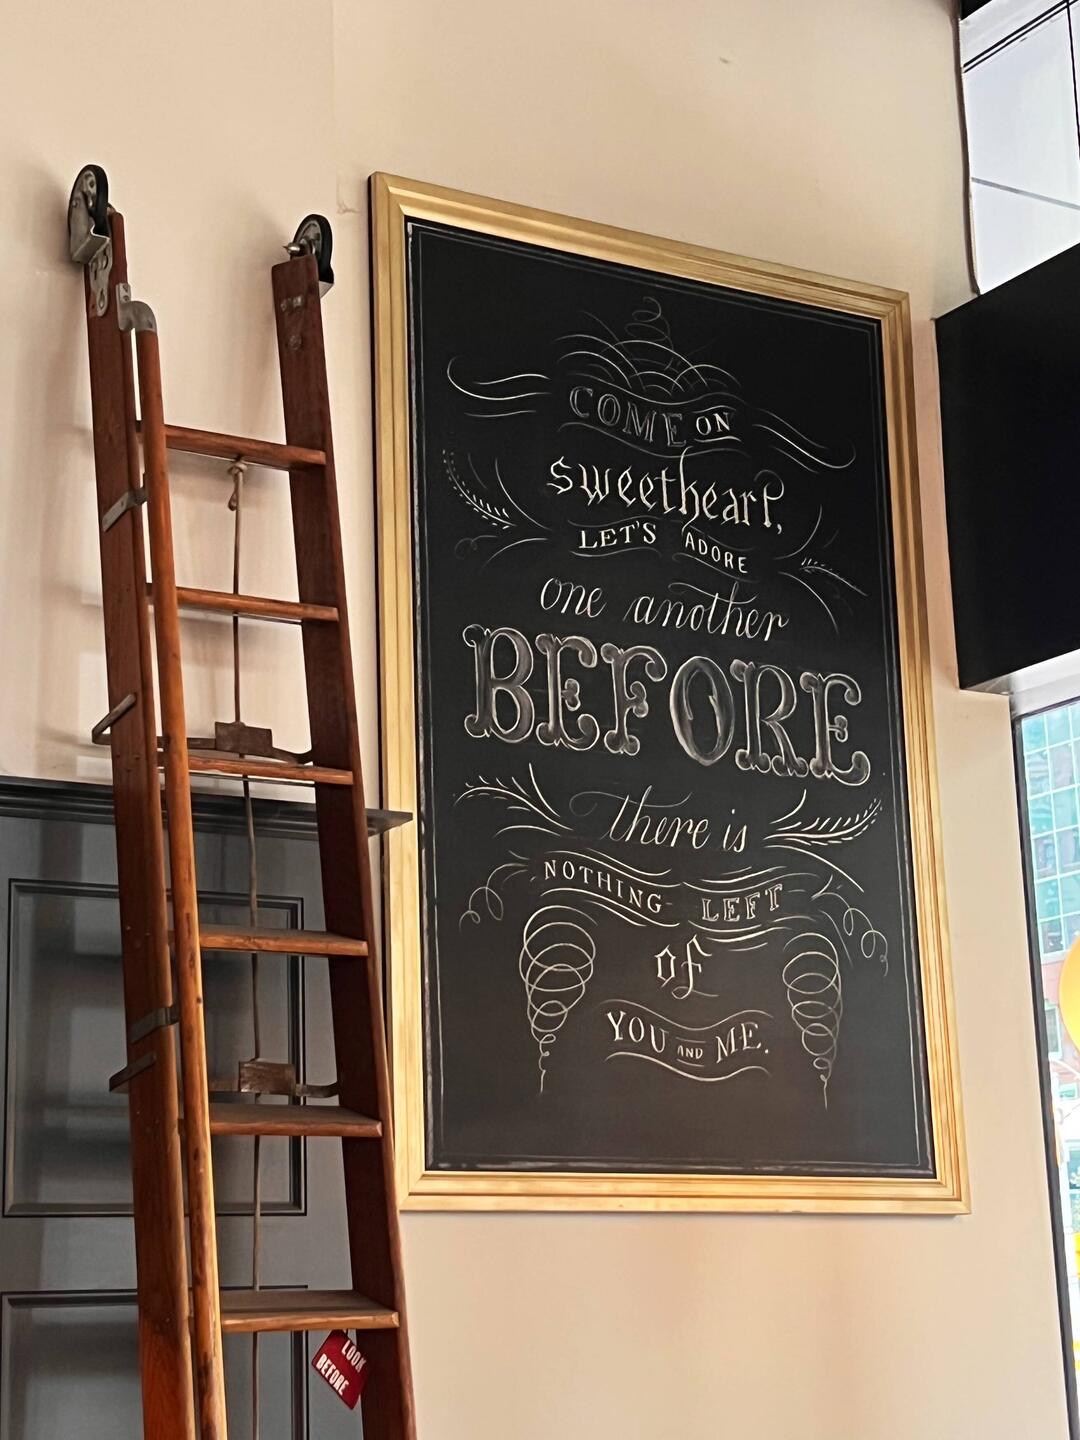 COME ON
sweetheart,
LET'S ADORE
one another
BEFORE
there is
NOTHING LEFT
of
YOU AND ME.
LOOK
BEFORE